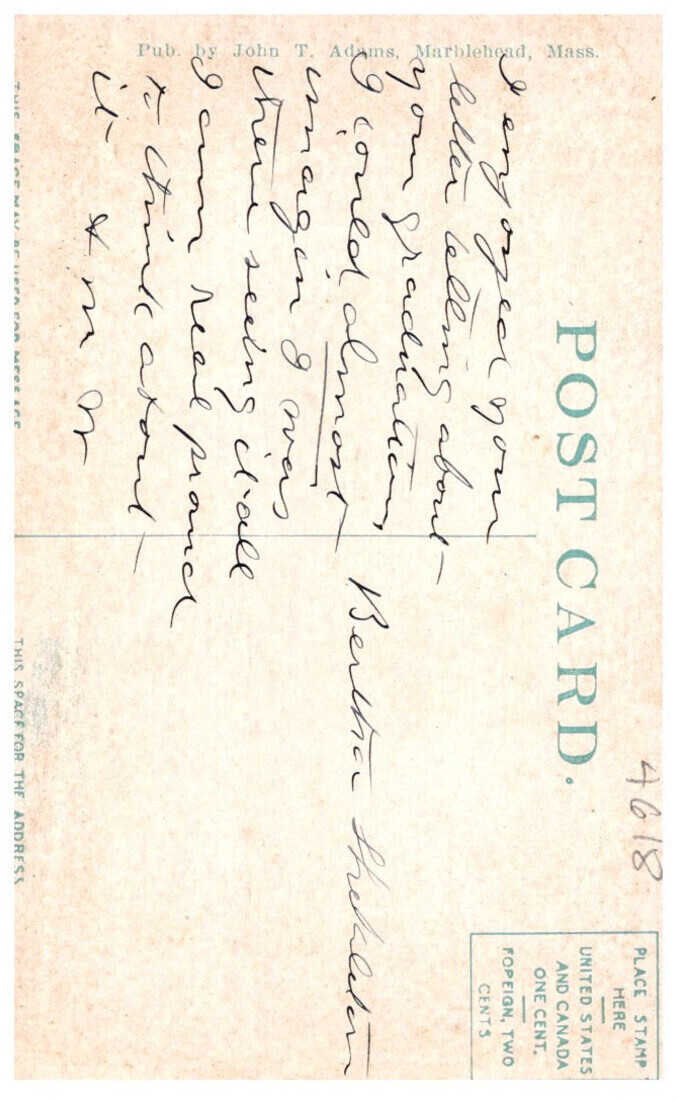 Pub. by John T. Adams, Marblehead, Mass.
POST CARD.
4618
PLACE STAMP
HERE
UNITED STATES
AND CANADA
ONE CENT.
FOREIGN, TWO
CENTS
I enjoyed your
letter telling about
your graduation,
I could almost
imagen I was
there seeing it all
I am real proud
to think about
it
Bertha
THIS SPACE MAY BE USED FOR MESSAGE
THIS SPACE FOR THE ADDRESS